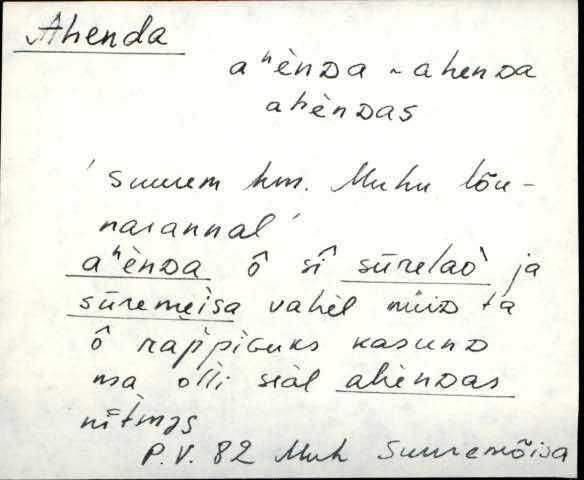 Ahenda
aʰènᴅa ~ ahenᴅa
ahènᴅas
'suurem km. Muhu lõu-
narannal'
aʰènᴅa ô sî sūrelaò ja
sūremèisa vahèl nüiᴅ ta
ô rappiɢuks kasunᴅ
ma ölli siäl ahènᴅas
nītmas
P.V. 82 Muh Suuremõisa